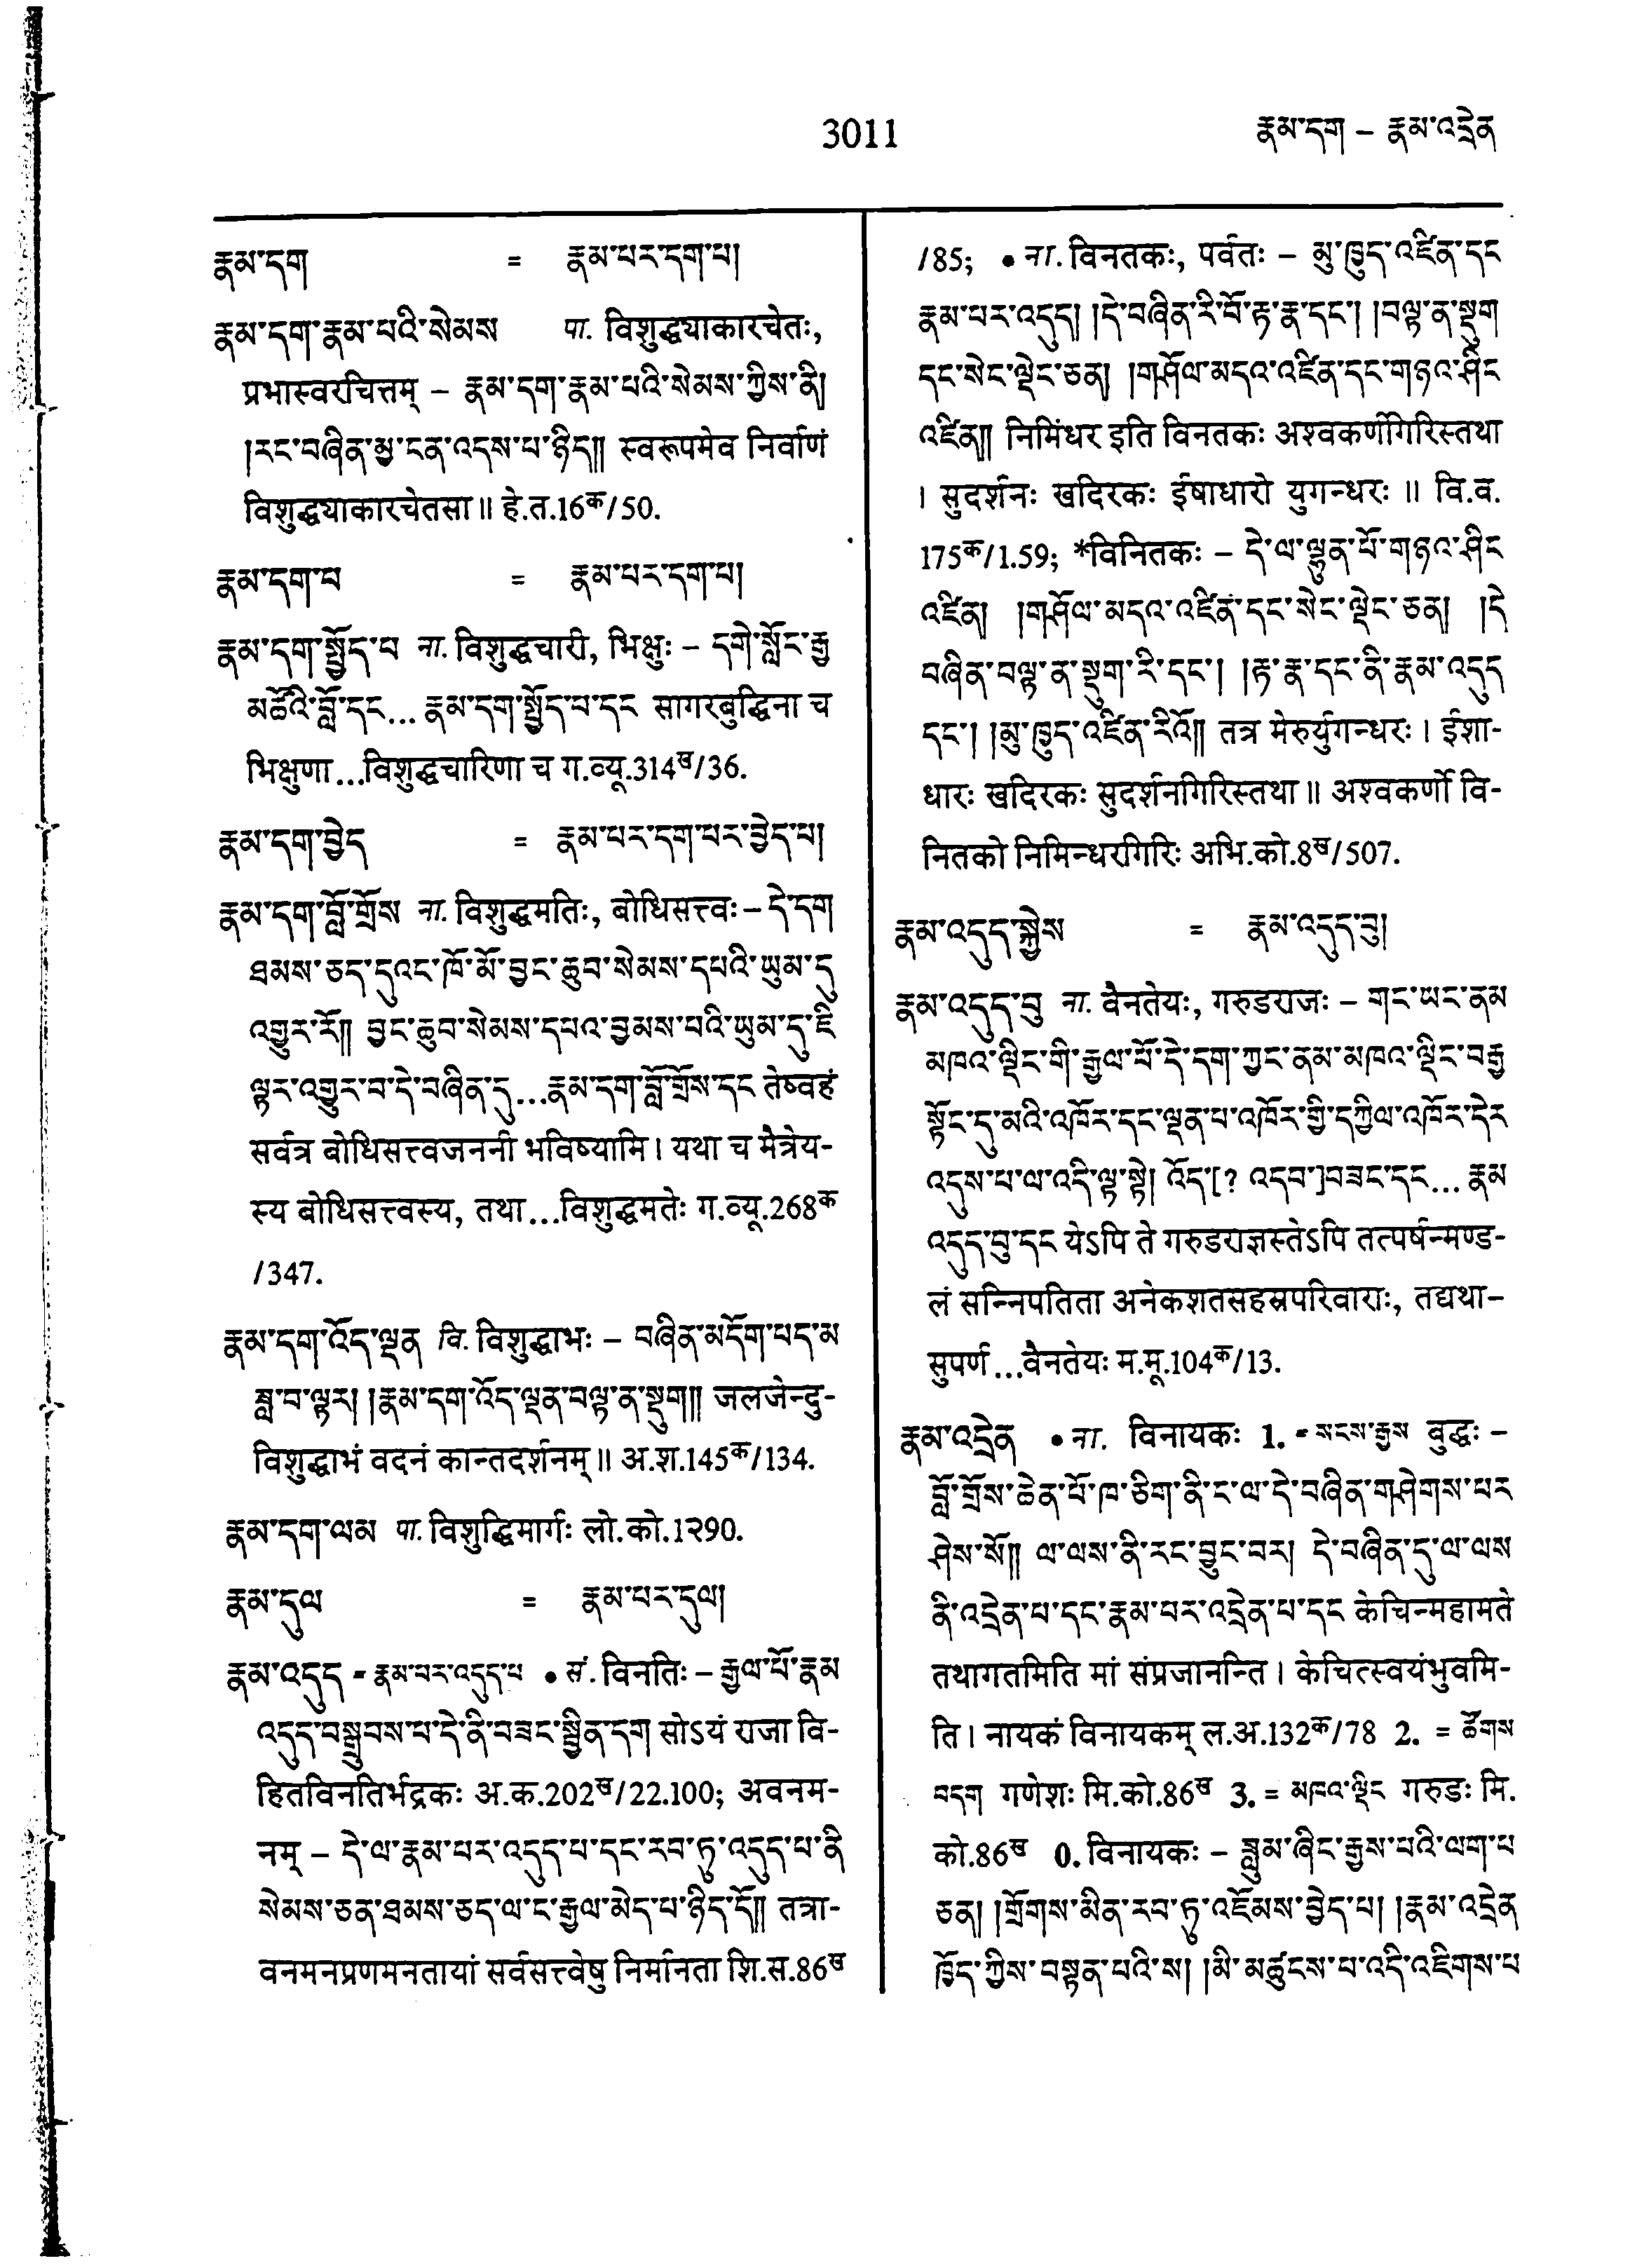 3011
རྣམ་དག – རྣམ་འདྲེན
རྣམ་དག = རྣམ་པར་དག་པ།
རྣམ་དག་རྣམ་པའི་སེམས पा. विशुद्ध्याकारचेतः,
प्रभास्वरचित्तम् – རྣམ་དག་རྣམ་པའི་སེམས་ཀྱིས་ནི།
།རང་བཞིན་མྱ་ངན་འདས་པ་ཉིད།། स्वरूपमेव निर्वाणं
विशुद्ध्याकारचेतसा ॥ हे.त.16क/50.
རྣམ་དག་པ = རྣམ་པར་དག་པ།
རྣམ་དག་སྤྱོད་པ ना. विशुद्धचारी, भिक्षुः – དགེ་སློང་རྒྱ
མཚོའི་བློ་དང... རྣམ་དག་སྤྱོད་པ་དང सागरबुद्धिना च
भिक्षुणा...विशुद्धचारिणा च ग.व्यू.314ख/36.
རྣམ་དག་བྱེད = རྣམ་པར་དག་པར་བྱེད་པ།
རྣམ་དག་བློ་གྲོས ना. विशुद्धमतिः, बोधिसत्त्वः – དེ་དག
ཐམས་ཅད་དུའང་ཁོ་མོ་བྱང་ཆུབ་སེམས་དཔའི་ཡུམ་དུ
འགྱུར་རོ།། བྱང་ཆུབ་སེམས་དཔའ་བྱམས་པའི་ཡུམ་དུ་ཇི
ལྟར་འགྱུར་བ་དེ་བཞིན་དུ...རྣམ་དག་བློ་གྲོས་དང तेष्वहं
सर्वत्र बोधिसत्त्वजननी भविष्यामि । यथा च मैत्रेय-
स्य बोधिसत्त्वस्य, तथा...विशुद्धमतेः ग.व्यू.268क
/347.
རྣམ་དག་འོད་ལྡན वि. विशुद्धाभः – བཞིན་མདོག་པད་མ
ཟླ་བ་ལྟར། །རྣམ་དག་འོད་ལྡན་བལྟ་ན་སྡུག།། जलजेन्दु-
विशुद्धाभं वदनं कान्तदर्शनम् ॥ अ.श.145क/134.
རྣམ་དག་ལམ पा. विशुद्धिमार्गः लो.को.1290.
རྣམ་དུལ = རྣམ་པར་དུལ།
རྣམ་འདུད = རྣམ་པར་འདུད་པ • सं. विनतिः – རྒྱལ་པོ་རྣམ
འདུད་བསྒྲུབས་པ་དེ་ནི་བཟང་སྦྱིན་དག सोऽयं राजा वि-
हितविनतिर्भद्रकः अ.क.202ख/22.100; अवनम-
नम् – དེ་ལ་རྣམ་པར་འདུད་པ་དང་རབ་ཏུ་འདུད་པ་ནི
སེམས་ཅན་ཐམས་ཅད་ལ་ང་རྒྱལ་མེད་པ་ཉིད་དོ།། तत्रा-
वनमनप्रणमनतायां सर्वसत्त्वेषु निर्मानता शि.स.86ख
/85; • ना. विनतकः, पर्वतः – མུ་ཁྱུད་འཛིན་དང
རྣམ་པར་འདུད། །དེ་བཞིན་རི་བོ་རྟ་རྣ་དང་། །བལྟ་ན་སྡུག
དང་སེང་ལྡེང་ཅན། །གཤོལ་མདའ་འཛིན་དང་གཉའ་ཤིང
འཛིན།། निमिंधर इति विनतकः अश्वकर्णगिरिस्तथा
। सुदर्शनः खदिरकः ईषाधारो युगन्धरः ॥ वि.व.
175क/1.59; *विनितकः – དེ་ལ་ལྷུན་པོ་གཉའ་ཤིང
འཛིན། །གཤོལ་མདའ་འཛིན་དང་སེང་ལྡེང་ཅན། །དེ
བཞིན་བལྟ་ན་སྡུག་རི་དང་། །རྟ་རྣ་དང་ནི་རྣམ་འདུད
དང་། །མུ་ཁྱུད་འཛིན་རིའོ།། तत्र मेरुर्युगन्धरः । ईशा-
धारः खदिरकः सुदर्शनगिरिस्तथा ॥ अश्वकर्णो वि-
नितको निमिन्धरगिरिः अभि.को.8ख/507.
རྣམ་འདུད་སྐྱེས = རྣམ་འདུད་བུ།
རྣམ་འདུད་བུ ना. वैनतेयः, गरुडराजः – གང་ཡང་ནམ
མཁའ་ལྡིང་གི་རྒྱལ་པོ་དེ་དག་ཀྱང་ནམ་མཁའ་ལྡིང་བརྒྱ
སྟོང་དུ་མའི་འཁོར་དང་ལྡན་པ་འཁོར་གྱི་དཀྱིལ་འཁོར་དེར
འདུས་པ་ལ་འདི་ལྟ་སྟེ། འོད་[? འདབ་]བཟང་དང... རྣམ
འདུད་བུ་དང येऽपि ते गरुडराज्ञस्तेऽपि तत्पर्षन्मण्ड-
लं सन्निपतिता अनेकशतसहस्रपरिवाराः, तद्यथा–
सुपर्ण...वैनतेयः म.मू.104क/13.
རྣམ་འདྲེན • ना. विनायकः 1. = སངས་རྒྱས बुद्धः –
བློ་གྲོས་ཆེན་པོ་ཁ་ཅིག་ནི་ང་ལ་དེ་བཞིན་གཤེགས་པར
ཤེས་སོ།། ལ་ལས་ནི་རང་བྱུང་བར། དེ་བཞིན་དུ་ལ་ལས
ནི་འདྲེན་པ་དང་རྣམ་པར་འདྲེན་པ་དང केचिन्महामते
तथागतमिति मां संप्रजानन्ति । केचित्स्वयंभुवमि-
ति । नायकं विनायकम् ल.अ.132क/78 2. = ཚོགས
བདག गणेशः मि.को.86ख 3. = མཁའ་ལྡིང गरुडः मि.
को.86ख 0. विनायकः – ཟླུམ་ཞིང་རྒྱས་པའི་ལག་པ
ཅན། །གྲོགས་མིན་རབ་ཏུ་འཇོམས་བྱེད་པ། །རྣམ་འདྲེན
ཁྱོད་ཀྱིས་བསྟན་པའི་ས། །མི་མཚུངས་པ་འདི་འཇིགས་པ